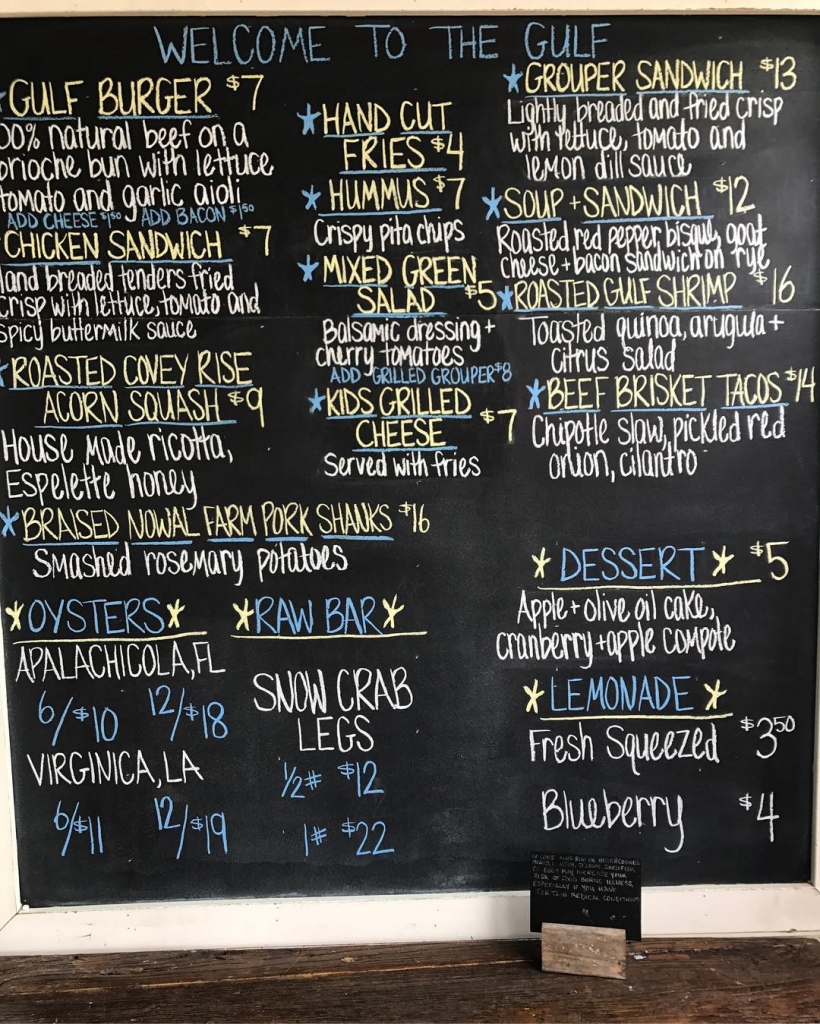 WELCOME TO THE GULF
GULF BURGER $7
00% natural beef on a
brioche bun with lettuce
tomato and garlic aioli
ADD CHEESE $1.50 ADD BACON $1.50
CHICKEN SANDWICH $7
Hand breaded tenders fried
crisp with lettuce, tomato and
spicy buttermilk sauce
ROASTED COVEY RISE
ACORN SQUASH $9
House made ricotta,
Espelette honey
BRAISED NOWAL FARM PORK SHANKS $16
Smashed rosemary potatoes
HAND CUT
FRIES $4
HUMMUS $7
Crispy pita chips
MIXED GREEN
SALAD $5
Balsamic dressing +
cherry tomatoes
ADD GRILLED GROUPER $8
KIDS GRILLED
CHEESE $7
Served with fries
GROUPER SANDWICH $13
Lightly breaded and fried crisp
with lettuce, tomato and
lemon dill sauce
SOUP + SANDWICH $12
Roasted red pepper bisque, goat
cheese + bacon sandwich on rye
ROASTED GULF SHRIMP $16
Toasted quinoa, arugula +
citrus salad
BEEF BRISKET TACOS $14
Chipotle slaw, pickled red
onion, cilantro
OYSTERS
APALACHICOLA, FL
6/$10 12/$18
VIRGINICA, LA
6/$11 12/$19
RAW BAR
SNOW CRAB
LEGS
1/2# $12
1# $22
DESSERT $5
Apple + olive oil cake,
cranberry + apple compote
LEMONADE
Fresh Squeezed $3.50
Blueberry $4
RISK OF FOOD BORNE ILLNESS,
ESPECIALLY IF YOU HAVE
CERTAIN MEDICAL CONDITIONS